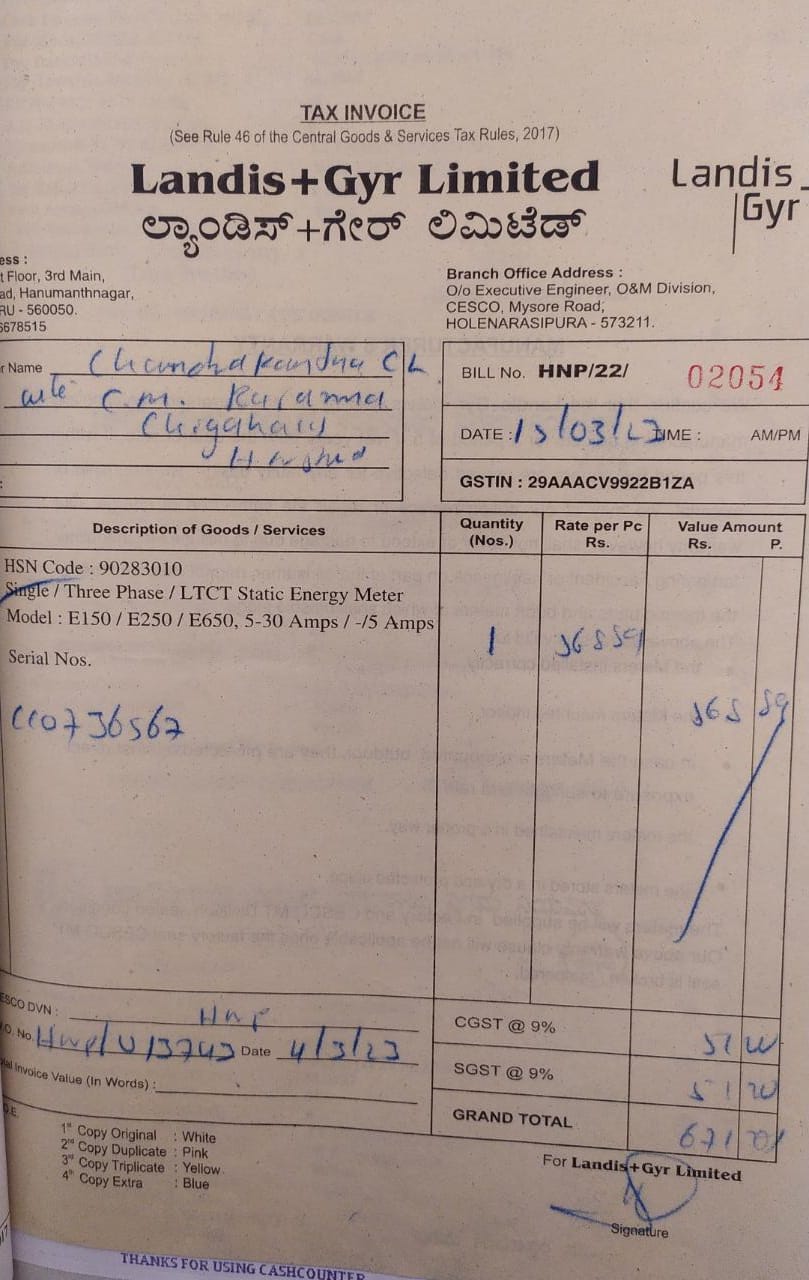 TAX INVOICE
(See Rule 46 of the Central Goods & Services Tax Rules, 2017)
Landis+Gyr Limited
Landis
Gyr
ಲ್ಯಾಂಡಿಸ್+ಗೇರ್ ಲಿಮಿಟೆಡ್
ess :
t Floor, 3rd Main,
ad, Hanumanthnagar,
RU - 560050.
6678515
Branch Office Address :
O/o Executive Engineer, O&M Division,
CESCO, Mysore Road,
HOLENARASIPURA - 573211.
r Name
C.M.
BILL No. HNP/22/ 02054
DATE : 15/03/23 TIME : AM/PM
GSTIN : 29AAACV9922B1ZA
Description of Goods / Services Quantity (Nos.) Rate per Pc Rs. Value Amount Rs. P.
HSN Code : 90283010
Single / Three Phase / LTCT Static Energy Meter
Model : E150 / E250 / E650, 5-30 Amps / -/5 Amps 1
Serial Nos.
ESCO DVN : HNP
.O. No. Date 4/3/23
al Invoice Value (In Words) :
CGST @ 9%
SGST @ 9%
GRAND TOTAL
.O.E.
1st Copy Original : White
2nd Copy Duplicate : Pink
3rd Copy Triplicate : Yellow
4th Copy Extra : Blue
For Landis+Gyr Limited
Signature
THANKS FOR USING CASHCOUNTER